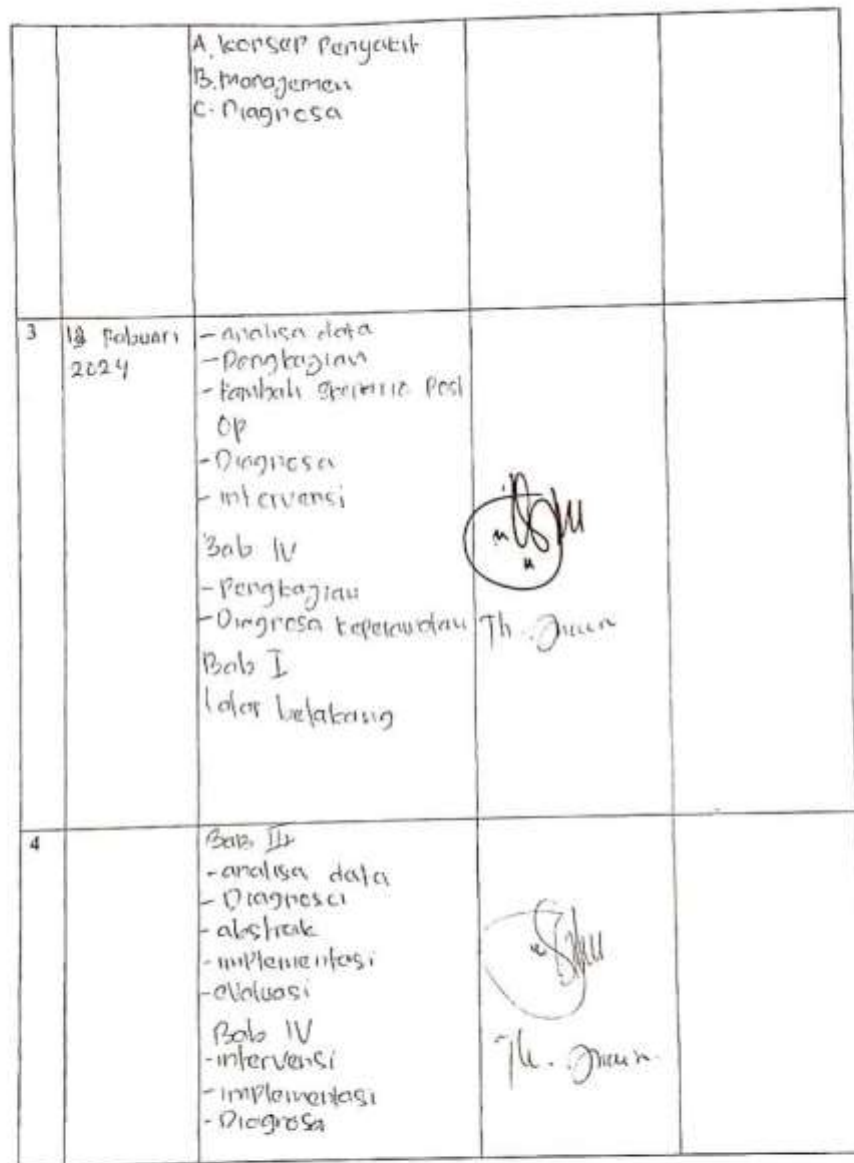 A. Konsep Penyakit
B. Manajemen
C. Diagnosa
3
Febuari
2024
- analisa data
- Pengkagian
- tambah Post
OP
- Diagnosa
- intervensi
Bab IV
- Pengkagian
- Diagnosa keperawatan
Th.
Bab I
latar belakang
4
Bab III
- analisa data
- Diagnosa
- abstrak
- implementasi
- evaluasi
Bab IV
- intervensi
Th.
- implementasi
- Diagnosa